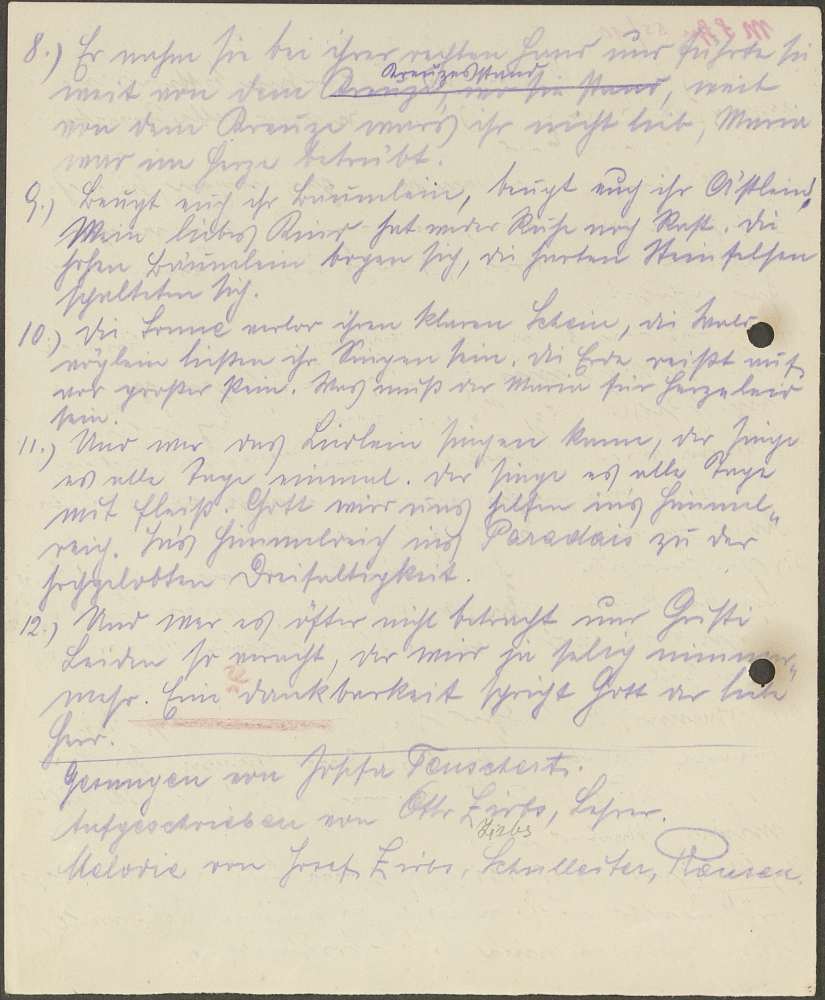 8.) Er nahm sie bei ihrer rechten Hand und führte sie
Kreuzesstand
weit von dem Kreuze, wo sie stand, weit
von dem Kreuze wars ihr nicht lieb, Maria
war im Herze betrübt.
9.) Beugt euch ihr Bäumelein, beugt euch ihr Ästlein,
Mein liebes Kind hat weder Ruhe noch Rast. Die
hohen Bäumelein bogen sich, die harten Steinfelsen
spalteten sich.
10.) Die Sonne verlor ihren klaren Schein, die Wald-
vöglein ließen ihr Singen sein. Die Erde reißt auf
vor großer Pein. Was muß der Maria für Herzeleid
sein.
11.) Und wer das Liedlein singen kann, der singe
es alle Tage einmal. Der singe es alle Tage
mit Fleiß. Gott wird uns helfen ins Himmel-
reich. Ins Himmelreich ins Paradais zu der
hochgelobten Dreifaltigkeit.
12.) Und wer es öfter nicht betracht und Christi
Leiden so veracht, der wird ja selig nimmer-
mehr. Eine dankbarkeit spricht Gott der liebe
Herr.
Gesungen von Josefa Tauschert.
Aufgeschrieben von Otto Zirbs, Lehrer.
Zirbs
Melodie von Josef Zirbs, Schulleiter,